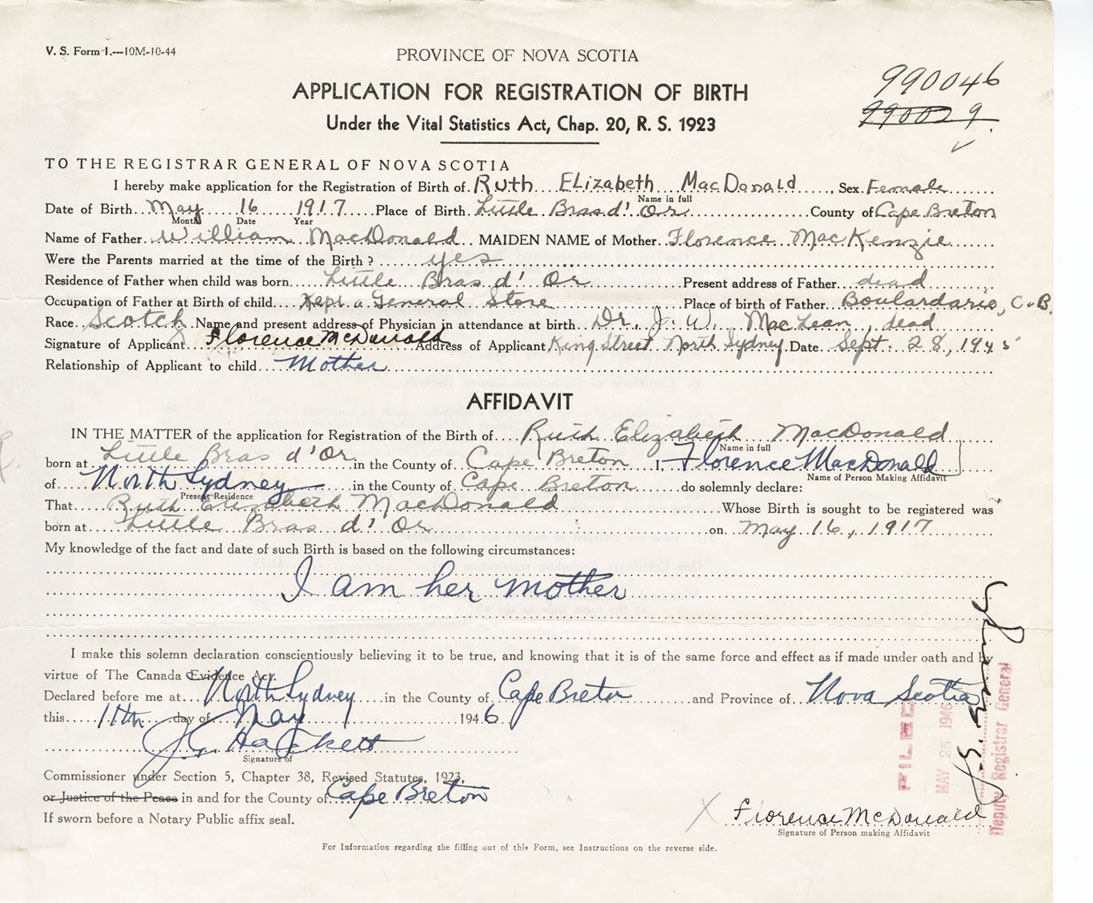 V. S. Form 1.—10M-10-44
PROVINCE OF NOVA SCOTIA
990046
APPLICATION FOR REGISTRATION OF BIRTH
990029.
Under the Vital Statistics Act, Chap. 20, R. S. 1923
TO THE REGISTRAR GENERAL OF NOVA SCOTIA
I hereby make application for the Registration of Birth of Ruth Elizabeth MacDonald, Sex Female
Name in full
Date of Birth May 16 1917 Place of Birth Little Bras d'Or County of Cape Breton
Month Date Year
Name of Father William MacDonald MAIDEN NAME of Mother Florence MacKenzie
Were the Parents married at the time of the Birth? yes
Residence of Father when child was born Little Bras d'Or Present address of Father dead
Occupation of Father at Birth of child Kept a General Store Place of birth of Father Boulardarie, C.B.
Race Scotch Name and present address of Physician in attendance at birth Dr. J. W. MacLean, dead
Signature of Applicant Florence McDonald Address of Applicant King Street North Sydney Date Sept. 28, 1945
Relationship of Applicant to child Mother
AFFIDAVIT
IN THE MATTER of the application for Registration of the Birth of Ruth Elizabeth MacDonald
Name in full
born at Little Bras d'Or in the County of Cape Breton I, Florence MacDonald
Name of Person Making Affidavit
of North Sydney in the County of Cape Breton do solemnly declare:
Present Residence
That Ruth Elizabeth MacDonald Whose Birth is sought to be registered was
born at Little Bras d'Or on May 16, 1917
My knowledge of the fact and date of such Birth is based on the following circumstances:
I am her mother
I make this solemn declaration conscientiously believing it to be true, and knowing that it is of the same force and effect as if made under oath and by
virtue of The Canada Evidence Act.
Declared before me at North Sydney in the County of Cape Breton and Province of Nova Scotia
this 11th day of May 1946
J. G. Hackett
Signature of
Commissioner under Section 5, Chapter 38, Revised Statutes, 1923,
or Justice of the Peace in and for the County of Cape Breton
If sworn before a Notary Public affix seal.
Florence McDonald
Signature of Person making Affidavit
For Information regarding the filling out of this Form, see Instructions on the reverse side.
FILED
MAY 25 1946
Deputy Registrar General